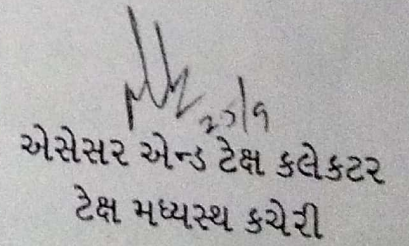 એસેસર એન્ડ ટેક્ષ કલેકટર
ટેક્ષ મધ્યસ્થ કચેરી